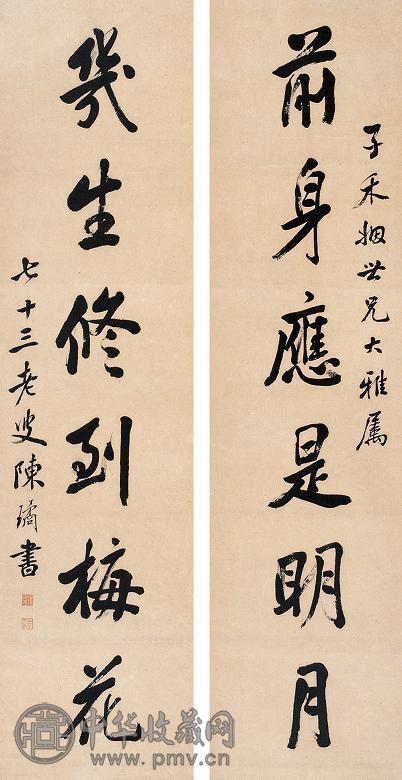 子禾姻世兄大雅属
前身應是明月
幾生修到梅花
七十三老叟陳璚書
中华收藏网
www.pmv.cn